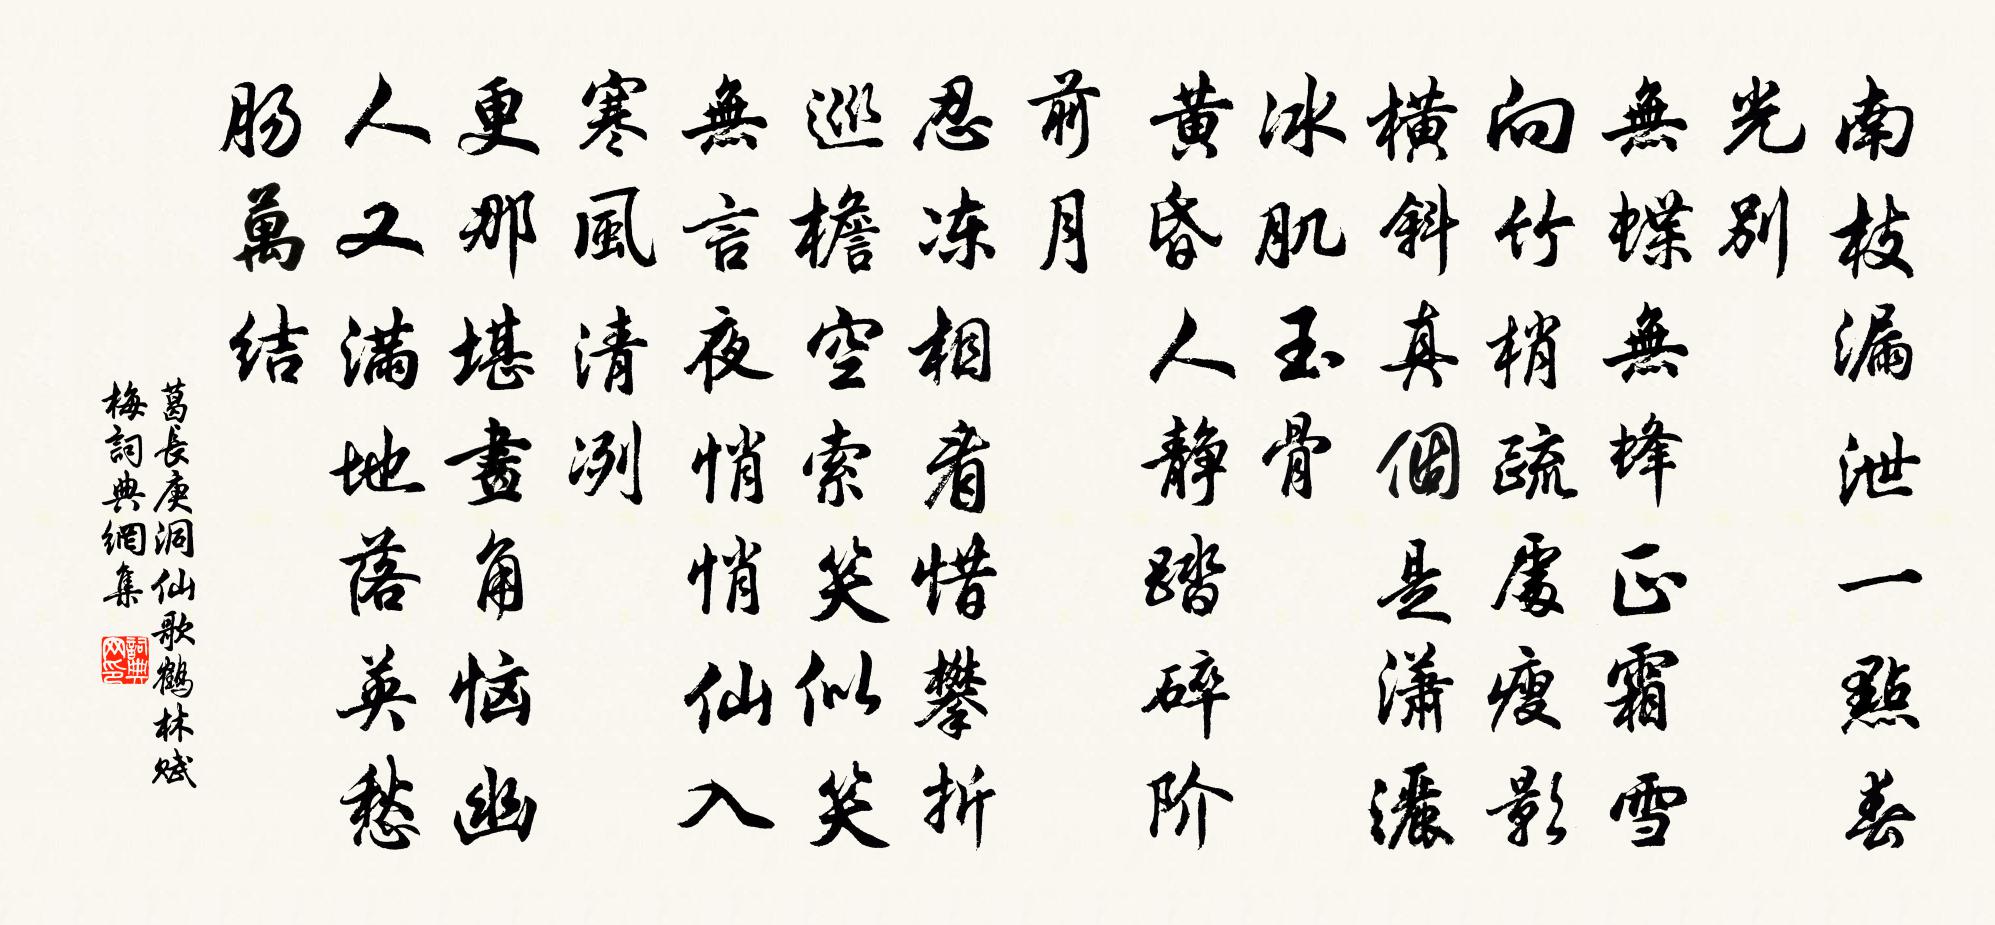 南枝漏泄一點春
光別
無蝶無蜂正霜雪
向竹梢疏處瘦影
橫斜真個是瀟灑
冰肌玉骨
黃昏人靜踏碎阶
前月
忍冻相看惜攀折
巡檐空索笑似笑
無言夜悄悄仙入
寒風清冽
更那堪畫角恼幽
人又滿地落英愁
肠萬结
葛長庚洞仙歌鹤林赋
梅詞典網集
詞典
网印